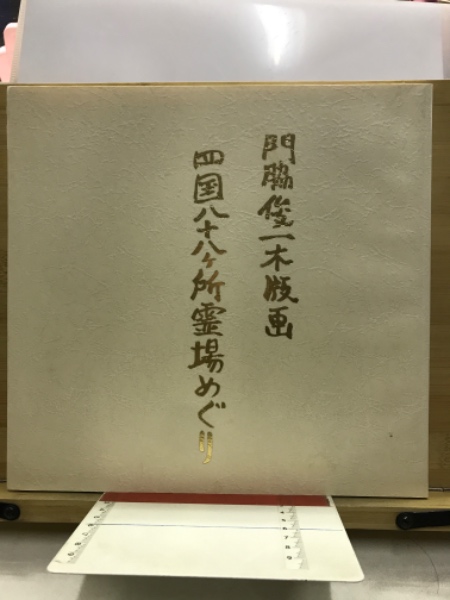 門脇俊一木版画
四国八十八ヶ所霊場めぐり